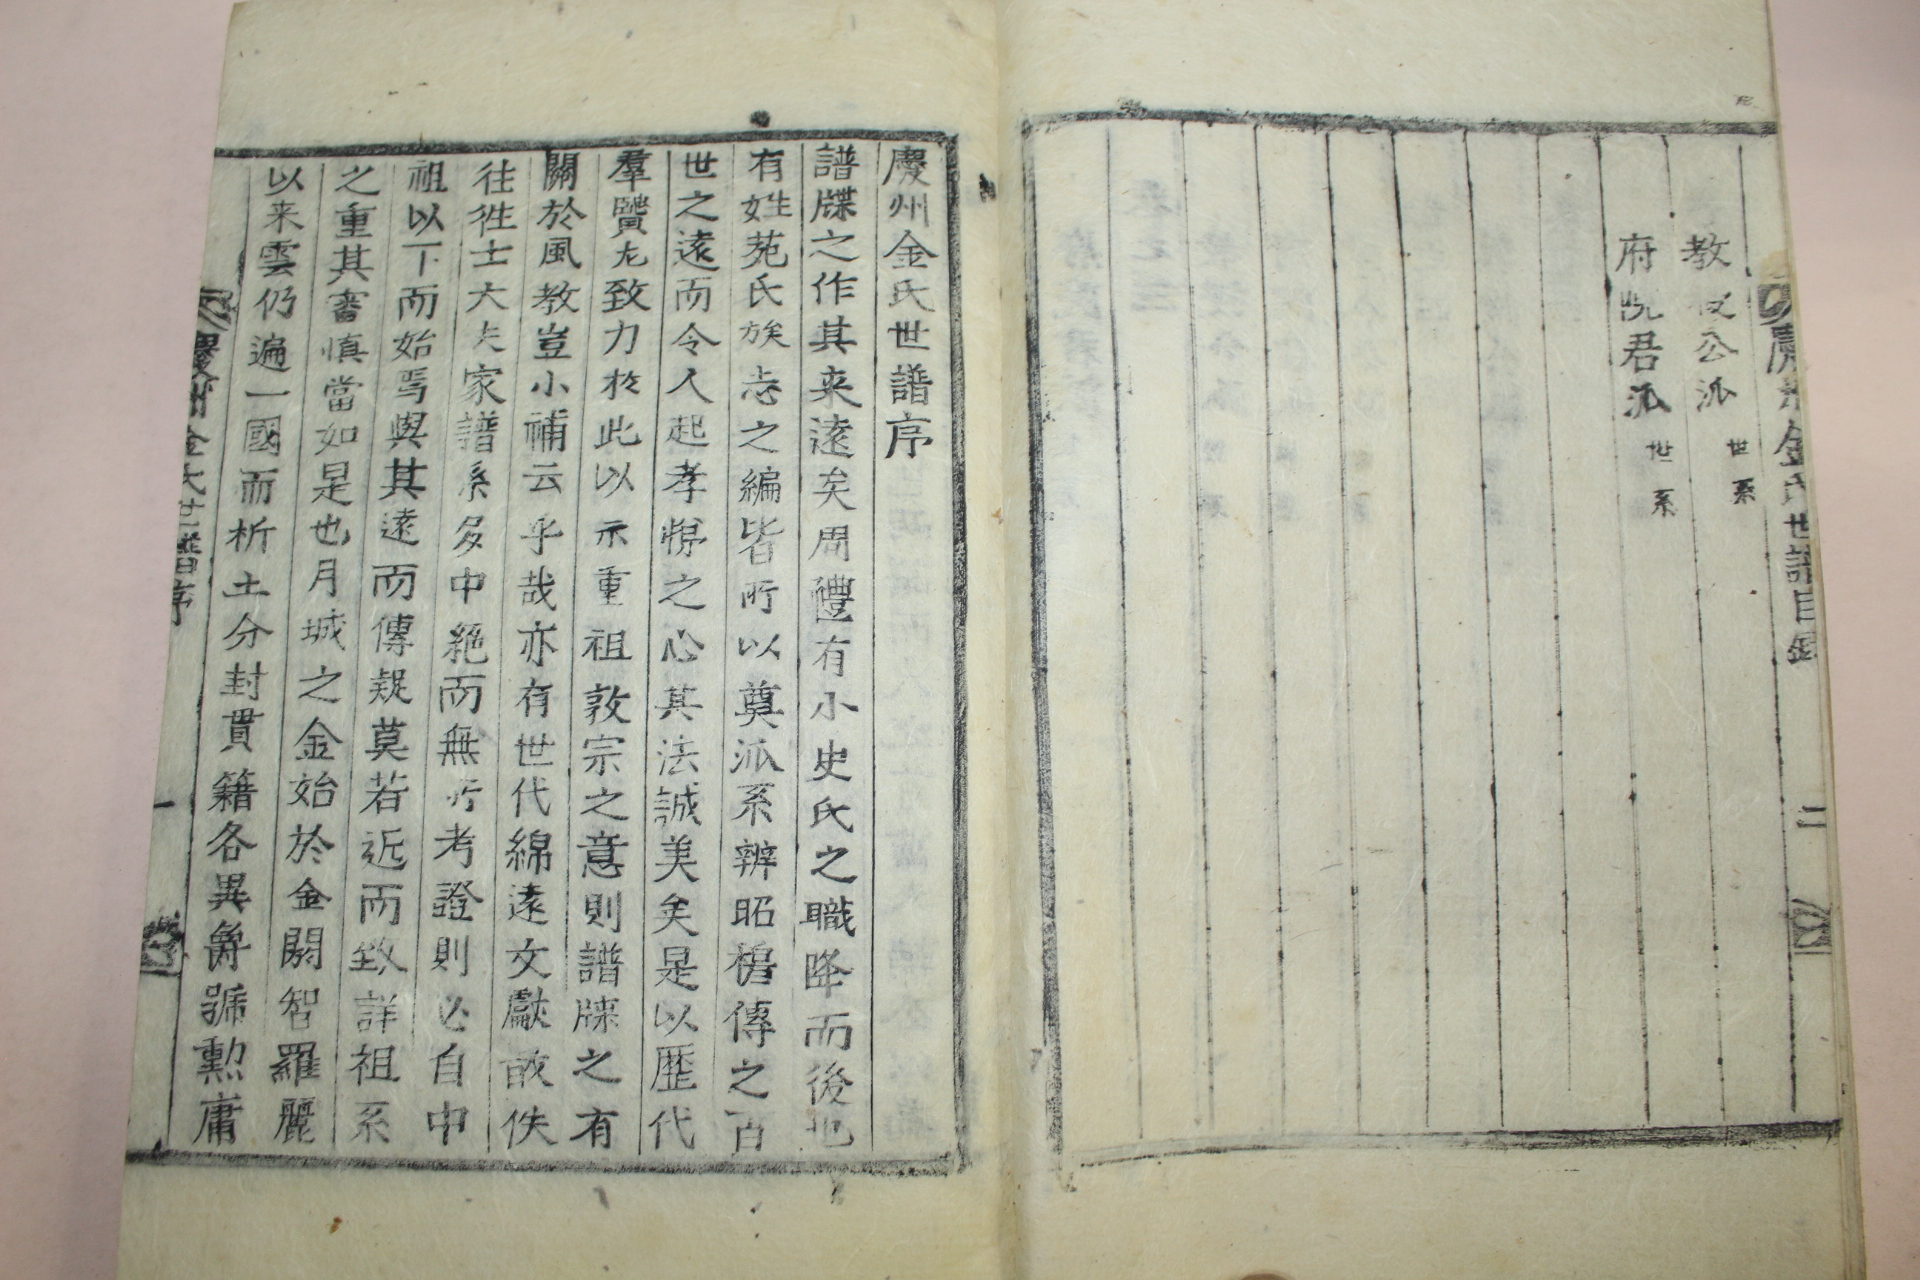 慶州金氏世譜目錄
二
教授公派 世系
府院君派 世系
慶州金氏世譜序
譜牒之作其来遠矣周禮有小史氏之職降而後也
有姓苑氏族志之編皆所以奠派系辨昭穆傳之百
世之遠而令人起孝悌之心其法誠美矣是以歷代
羣賢尤致力於此以示重祖敦宗之意則譜牒之有
關於風教豈小補云乎哉亦有世代綿遠文獻故佚
往往士大夫家譜系多中絶而無所考證則必自中
祖以下而始焉與其遠而傳疑莫若近而致詳祖系
之重其審慎當如是也月城之金始於金閼智羅麗
以来雲仍遍一國而析土分封貫籍各異爵號勳庸
慶州金氏世譜序
一